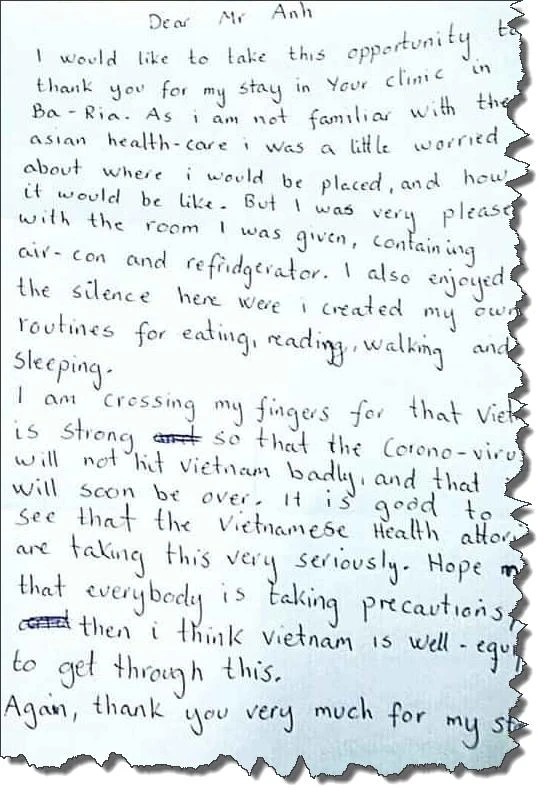 Dear Mr Anh
I would like to take this opportunity to
thank you for my stay in Your clinic in
Ba-Ria. As i am not familiar with the
asian health-care i was a little worried
about where i would be placed, and how
it would be like. But I was very please
with the room I was given, containing
air-con and refridgerator. I also enjoyed
the silence here were i created my own
routines for eating, reading, walking and
Sleeping.
I am crossing my fingers for that Viet
is strong and so that the Corono-viru
will not hit Vietnam badly, and that
will soon be over. It is good to
see that the Vietnamese Health attor
are taking this very seriously. Hope
that everybody is taking precautions,
and then i think Vietnam is well-equi
to get through this.
Again, thank you very much for my st